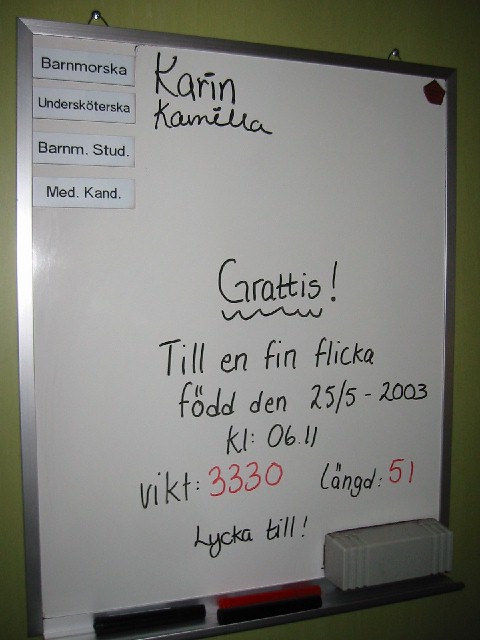 Barnmorska Karin
Undersköterska Kamilla
Barnm. Stud.
Med. Kand.
Grattis!
Till en fin flicka
född den 25/5 - 2003
kl: 06.11
vikt: 3330 längd: 51
Lycka till!